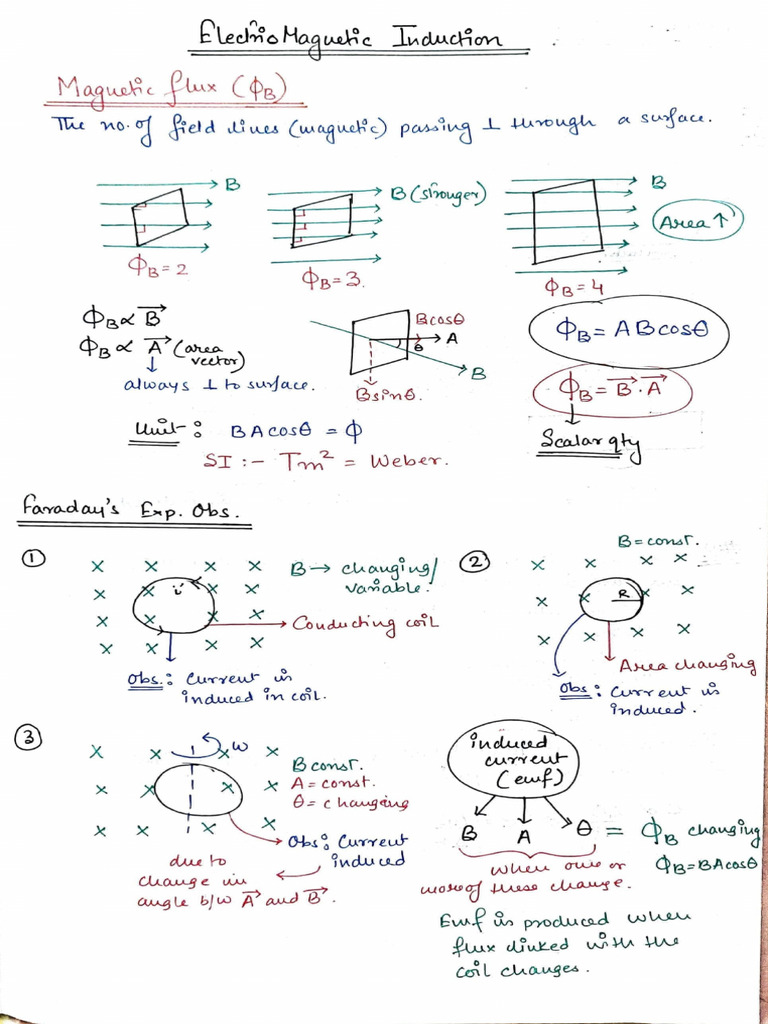 ElectroMagnetic Induction
Magnetic flux (ϕB)
The no. of field lines (magnetic) passing ⊥ through a surface.
B
B (stronger)
B
Area ↑
ϕB = 2
ϕB = 3.
ϕB = 4
ϕB ∝ B⃗
ϕB ∝ A⃗ (area vector)
always ⊥ to surface.
Bcosθ
A
θ
B
Bsinθ.
ϕB = ABcosθ
ϕB = B⃗ · A⃗
Scalar qty
Unit :  BAcosθ = ϕ
SI :- Tm² = Weber.
Faraday's Exp. Obs.
①
x x x x
x x x x
x x x x
x x x x
i
B → changing/
variable.
Conducting coil
Obs.: Current is
induced in coil.
②
B = const.
x x x
x x x x
x x x
R
Area changing
Obs: Current is
induced.
③
x x x x
x x x x
x x x x
ω
B const.
A = const.
θ = changing
Obs: Current
induced
due to
change in
angle b/w A⃗ and B⃗.
induced
current
(emf)
B A θ = ϕB changing
ϕB = BAcosθ
when one or
more of these change.
Emf is produced when
flux linked with the
coil changes.